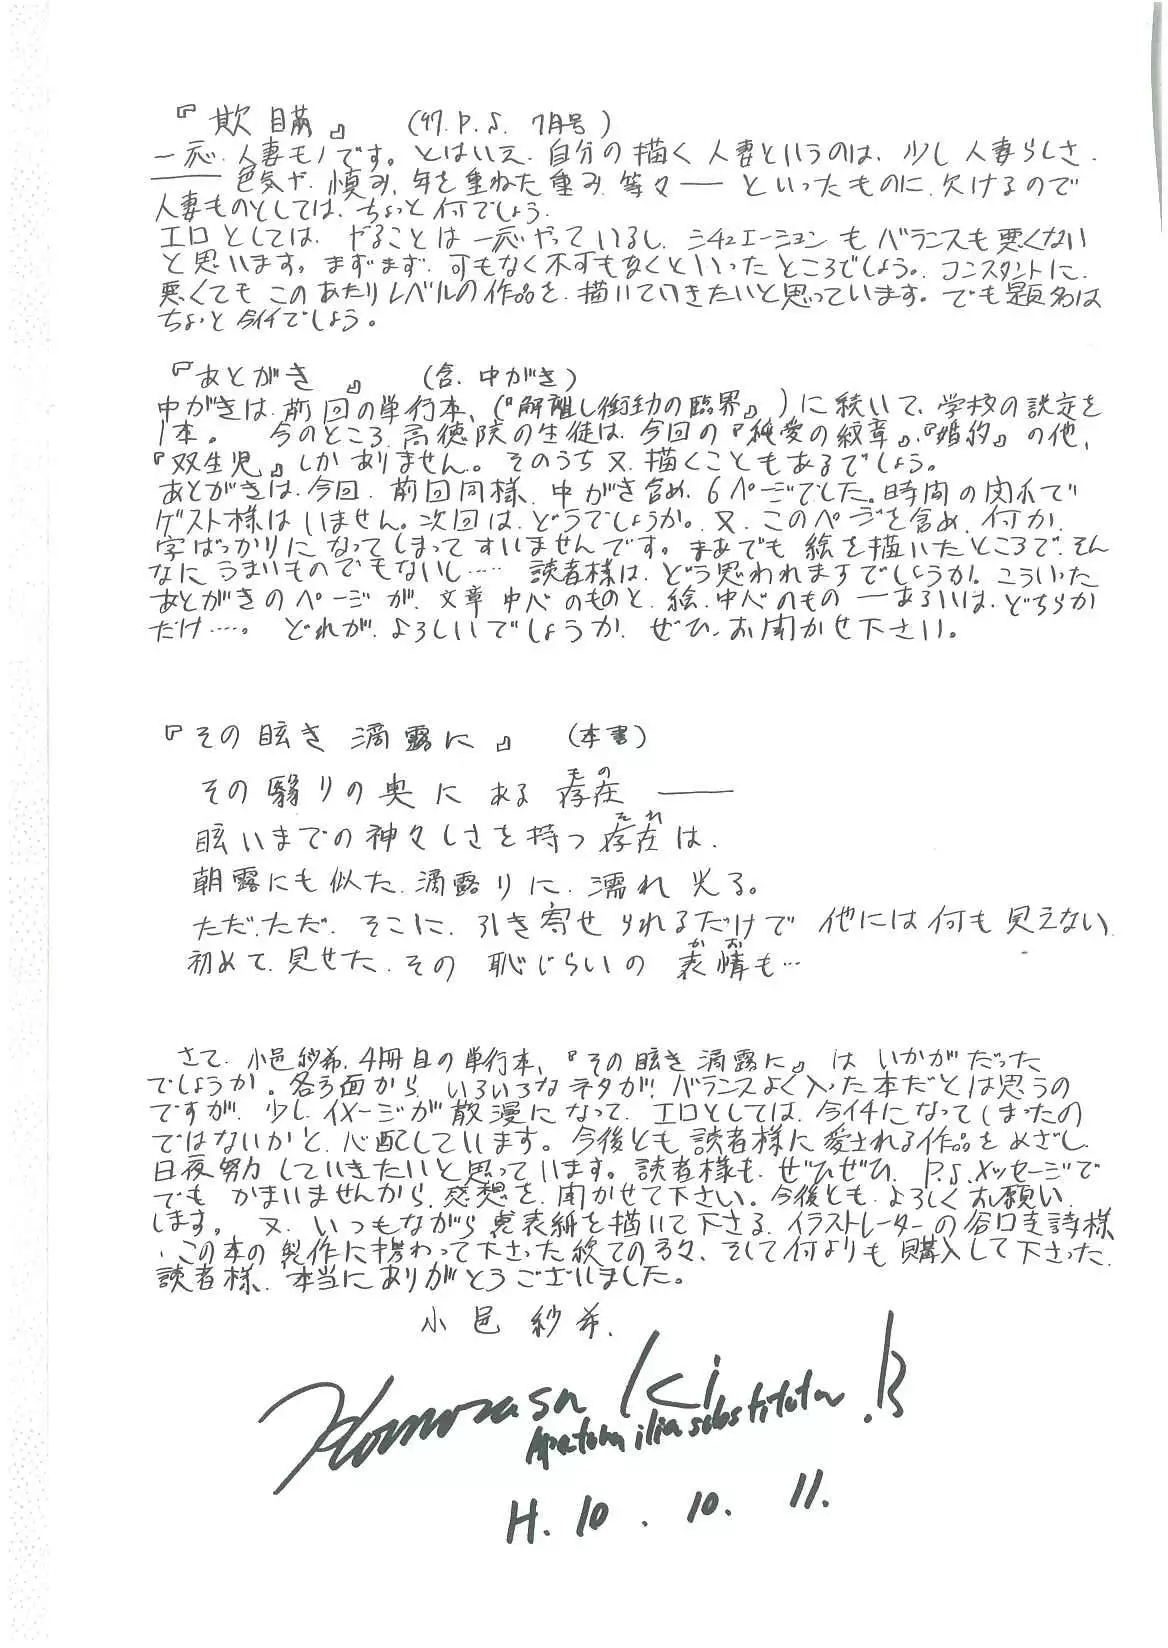 『欺瞞』 ('97.P.S. 7月号)
一応、人妻モノです。とはいえ、自分の描く人妻というのは、少し人妻らしさ、
――色気や、慎み、年を重ねた重み、等々――といったものに、欠けるので
人妻ものとしては、ちょっと何でしょう。
エロとしては、やることは一応やっているし、シチュエーションもバランスも悪くない
と思います。まずまず、可もなく不可もなくといったところでしょう。コンスタントに、
悪くてもこのあたりレベルの作品を、描いていきたいと思っています。でも題名は
ちょっと今イチでしょう。
『あとがき』 (含、中がき)
中がきは、前回の単行本、(『解離し衝動の臨界』)に続いて、学校の設定を
1本。 今のところ、高徳院の生徒は、今回の『純愛の紋章』、『婚約』の他、
『双生児』しかありません。そのうち又、描くこともあるでしょう。
あとがきは、今回、前回同様、中がき含め、6ページでした。時間の関係で
ゲスト様はいません。次回は、どうでしょうか。又、このページを含め、何か、
字ばっかりになってしまってすいませんです。まあでも絵を描いたところで、そん
なにうまいものでもないし…… 読者様は、どう思われますでしょうか。こういった
あとがきのページが、文章中心のものと、絵、中心のもの―あるいは、どちらか
だけ……。 どれが、よろしいでしょうか、ぜひ、お聞かせ下さい。
『その眩き滴露に』 (本書)
その翳りの奥にある存在――
もの
眩いまでの神々しさを持つ存在は、
それ
朝露にも似た、滴露りに、濡れ光る。
ただ、ただ、そこに、引き寄せられるだけで他には何も見えない、
初めて、見せた、その恥じらいの表情も…
かお
さて、小邑紗希、4冊目の単行本、『その眩き滴露に』はいかがだった
でしょうか。各方面から、いろいろなネタが、バランスよく入った本だとは思うの
ですが、少し、イメージが散漫になって、エロとしては、今イチになってしまったの
ではないかと、心配しています。今後とも、読者様に愛される作品をめざし、
日夜努力していきたいと思っています。読者様も、ぜひぜひ、P.S.メッセージで
でもかまいませんから、感想を、聞かせて下さい。今後とも、よろしくお願い、
します。 又、いつもながら裏表紙を描いて下さる、イラストレーターの谷口 詩様、
、この本の製作に携わって下さった総ての方々、そして何よりも購入して下さった、
読者様、本当にありがとうございました。
小邑紗希.
Komurasa Ki .B
H.10.10.11.